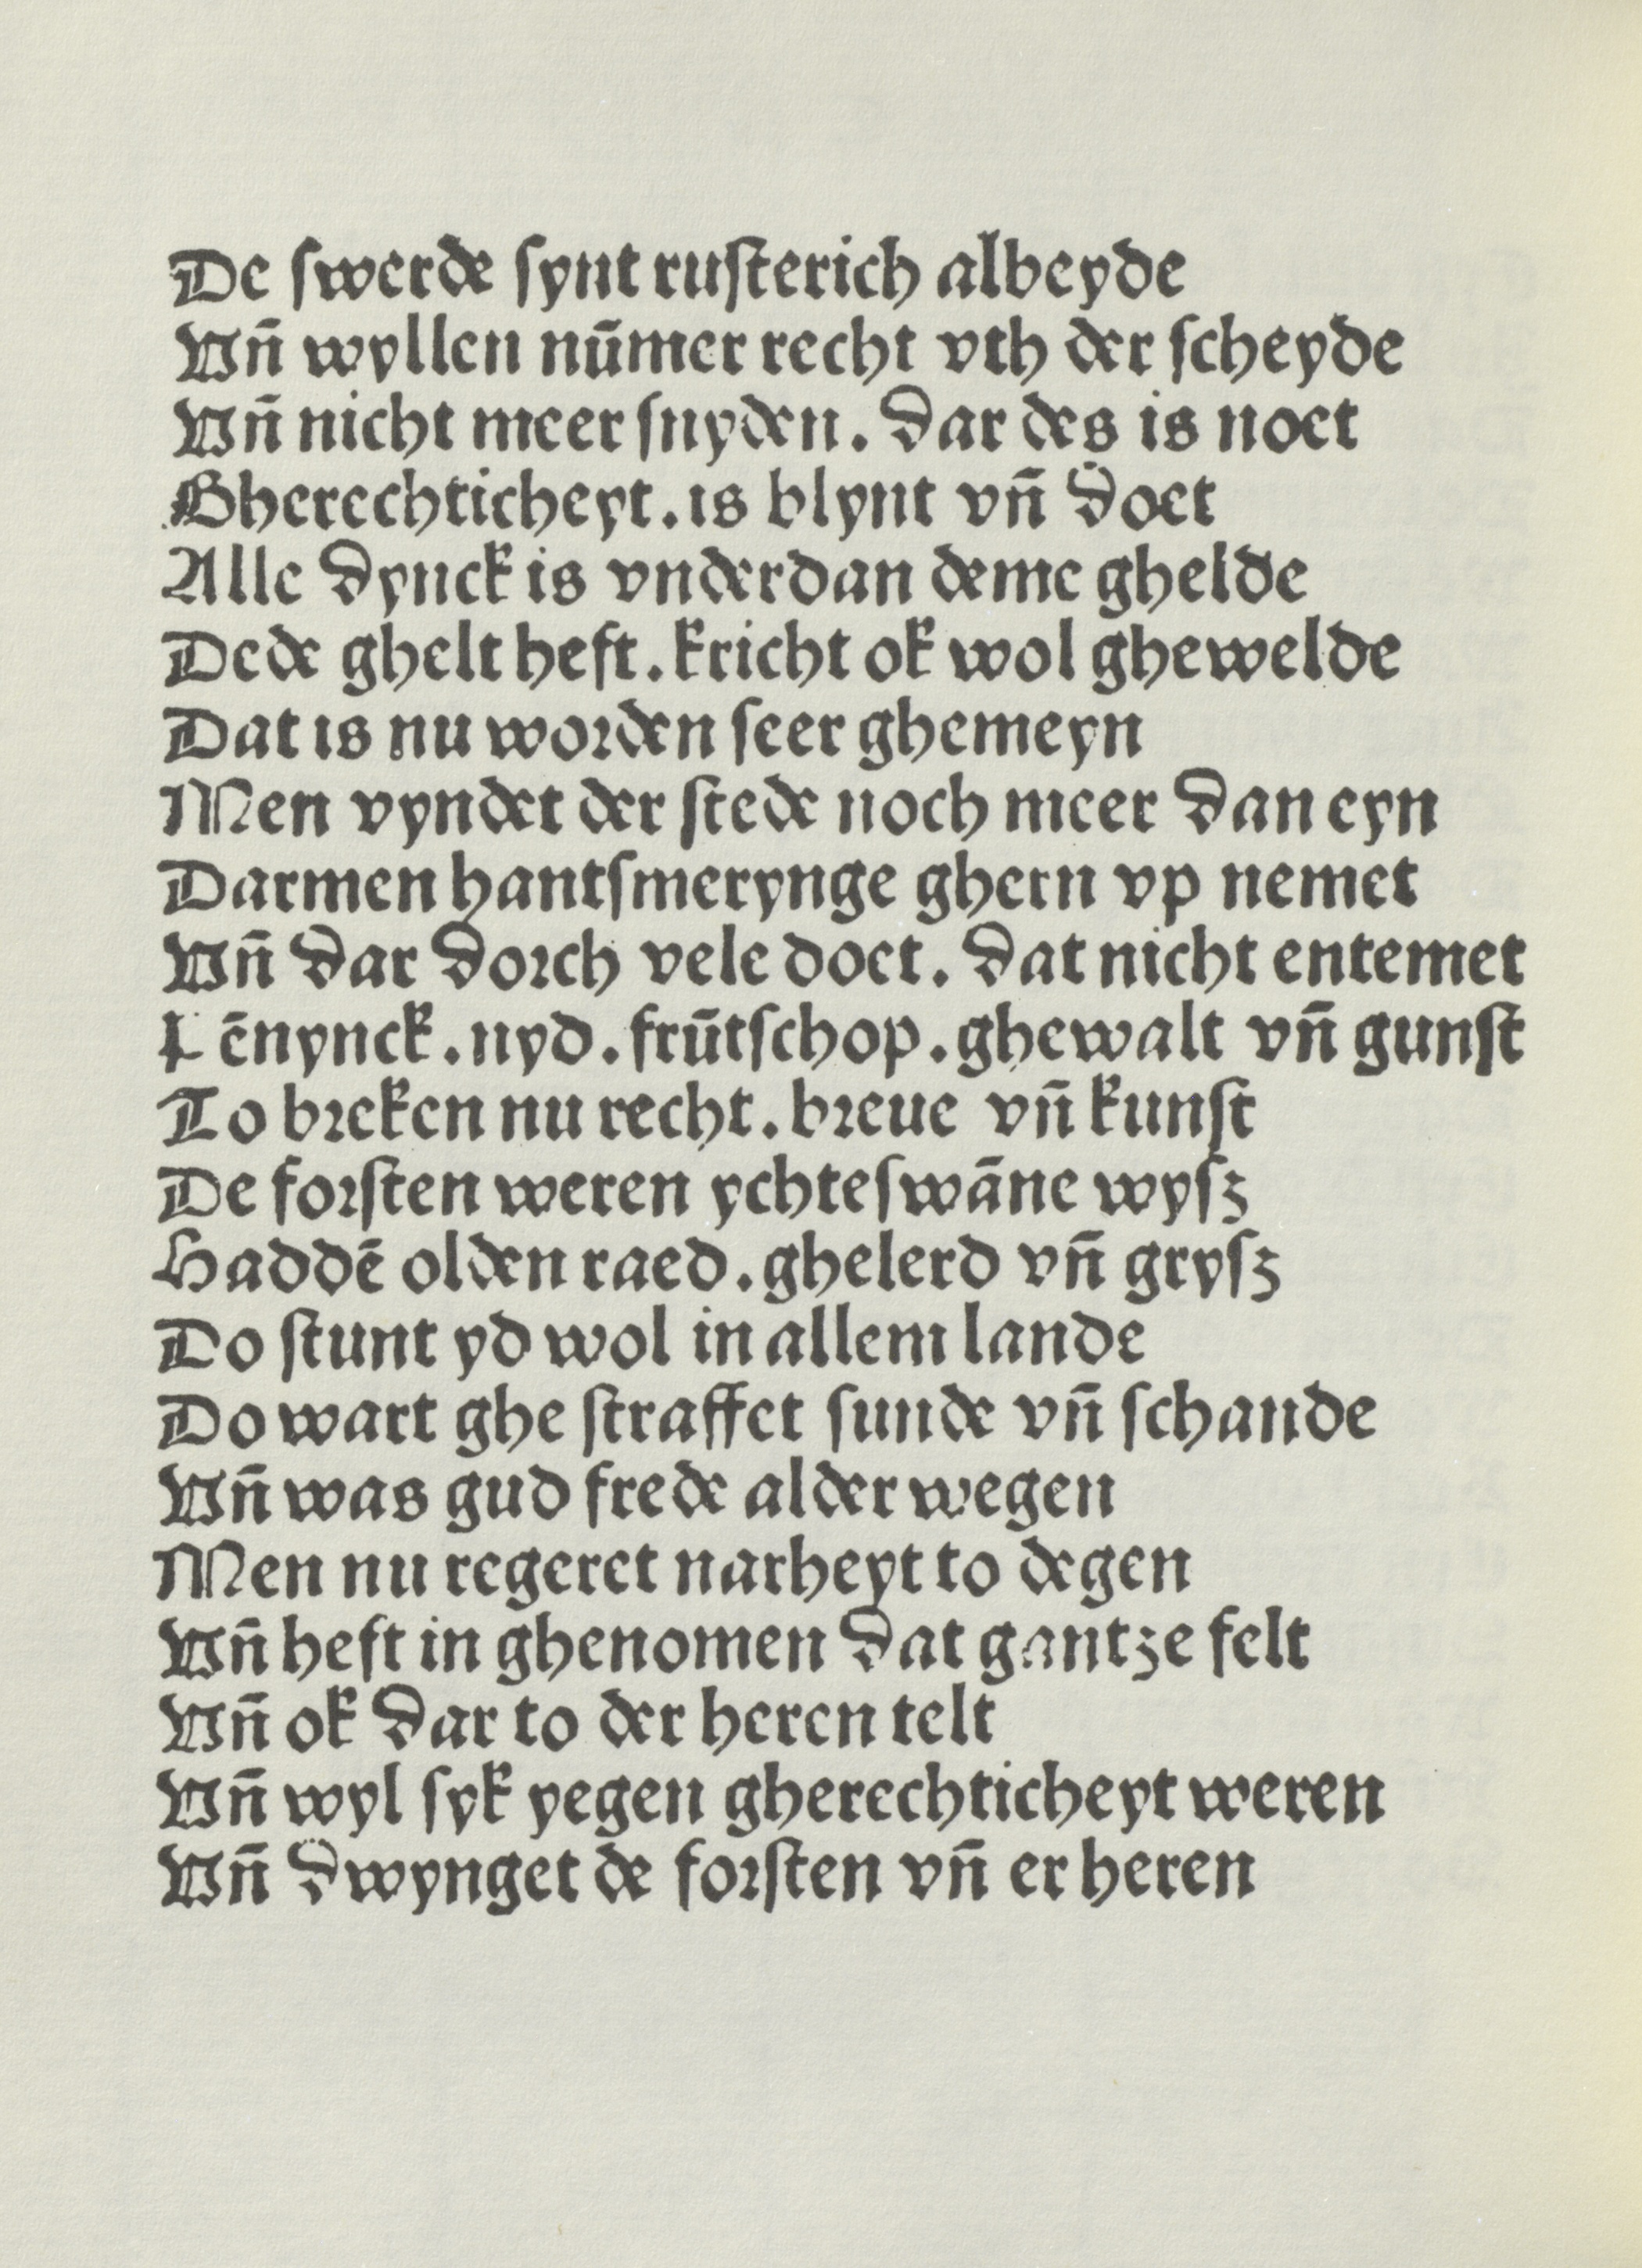 De swerde synt rusterich albeyde
Vn̄ wyllen nūmer recht vth der scheyde
Vn̄ nicht meer snyden. dar des is noet
Gherechticheyt. is blynt vn̄ doet
Alle dynck is vnderdan deme ghelde
Dede ghelt heft. kricht ok wol ghewelde
Dat is nu worden seer ghemeyn
Men vyndet der stede noch meer dan eyn
Darmen hantsmerynge ghern vp nemet
Vn̄ dar dorch vele doet. dat nicht entemet
Pēnynck. nyd. frūtschop. ghewalt vn̄ gunst
To breken nu recht. breue vn̄ kunst
De forsten weren ychteswāne wysz
Haddē olden raed. ghelerd vn̄ grysz
Do stunt yd wol in allem lande
Do wart ghe straffet sunde vn̄ schande
Vn̄ was gud frede alder wegen
Men nu regeret narheyt to degen
Vn̄ heft in ghenomen dat gantze felt
Vn̄ ok dar to der heren telt
Vn̄ wyl syk yegen gherechticheyt weren
Vn̄ dwynget de forsten vn̄ er heren